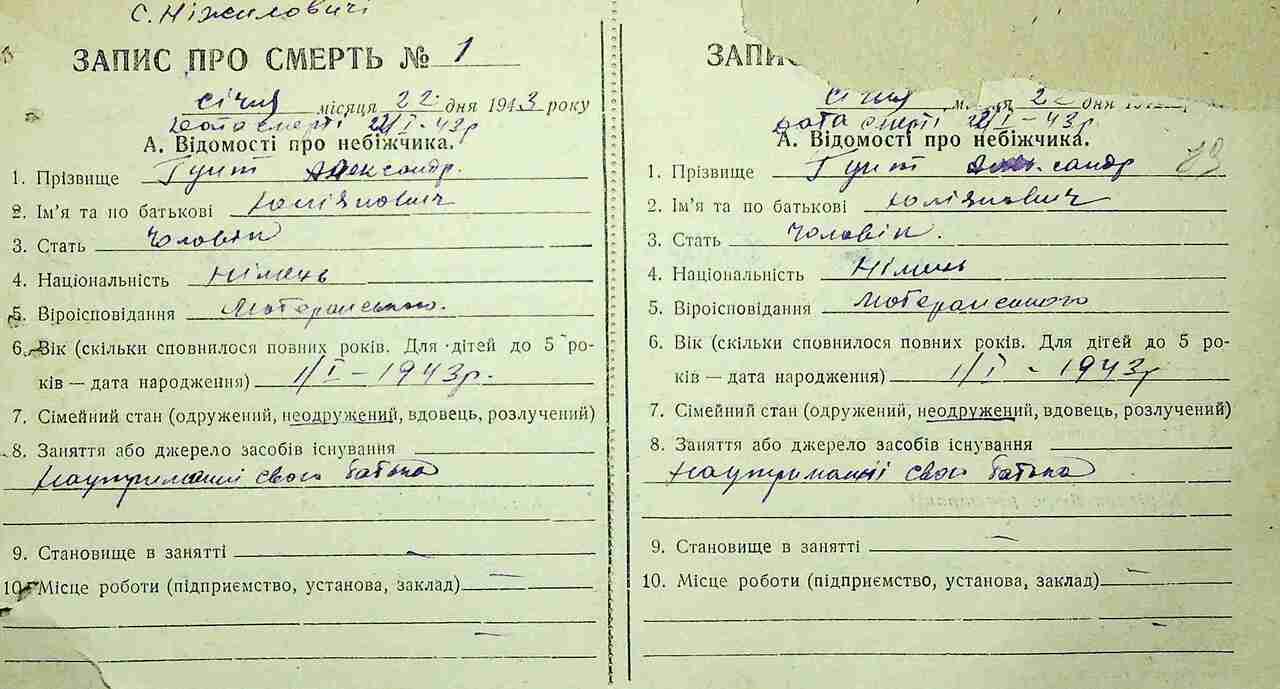 С. Ніжиловичі
ЗАПИС ПРО СМЕРТЬ № 1
січня місяця 22 дня 1943 року
Дата смерті 22/I - 43 р
А. Відомості про небіжчика.
1. Прізвище Гунт Александр.
2. Ім'я та по батькові Юліянович
3. Стать Чоловік
4. Національність Німець
5. Віроісповідання Лютеранського.
6. Вік (скільки сповнилося повних років. Для дітей до 5 ро-
ків — дата народження) 1/I - 1943 р.
7. Сімейний стан (одружений, неодружений, вдовець, розлучений)
8. Заняття або джерело засобів існування
на утриманні свого батька
9. Становище в занятті —
10. Місце роботи (підприємство, установа, заклад) —
—
ЗАПИС
січня місяця 22 дня
Дата смерті 22/I - 43 р
А. Відомості про небіжчика.
1. Прізвище Гунт Александр 19
2. Ім'я та по батькові Юліянович
3. Стать Чоловік.
4. Національність Німець
5. Віроісповідання Лютеранського
6. Вік (скільки сповнилося повних років. Для дітей до 5 ро-
ків — дата народження) 1/I - 1943 р
7. Сімейний стан (одружений, неодружений, вдовець, розлучений)
8. Заняття або джерело засобів існування
на утриманні свого батька
9. Становище в занятті —
10. Місце роботи (підприємство, установа, заклад) —
—